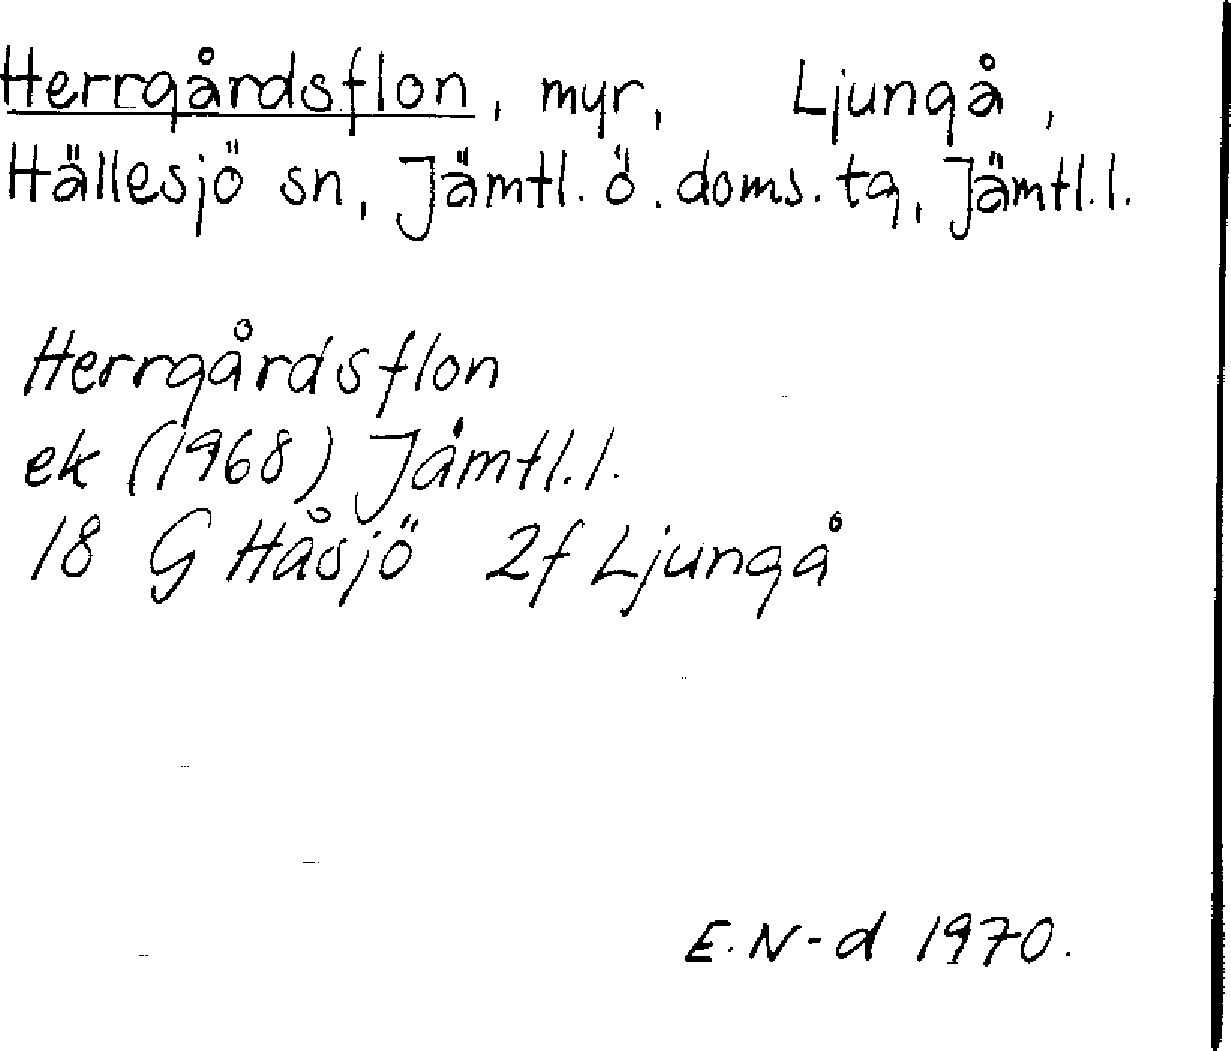 Herrgårdsflon, myr, Ljungå,
Hällesjö sn, Jämtl. ö. doms. tg, Jämtl. l.
Herrgårdsflon
ek (1968) Jämtl. l.
18 G Håsjö 2f Ljungå
E. N-d 1970.